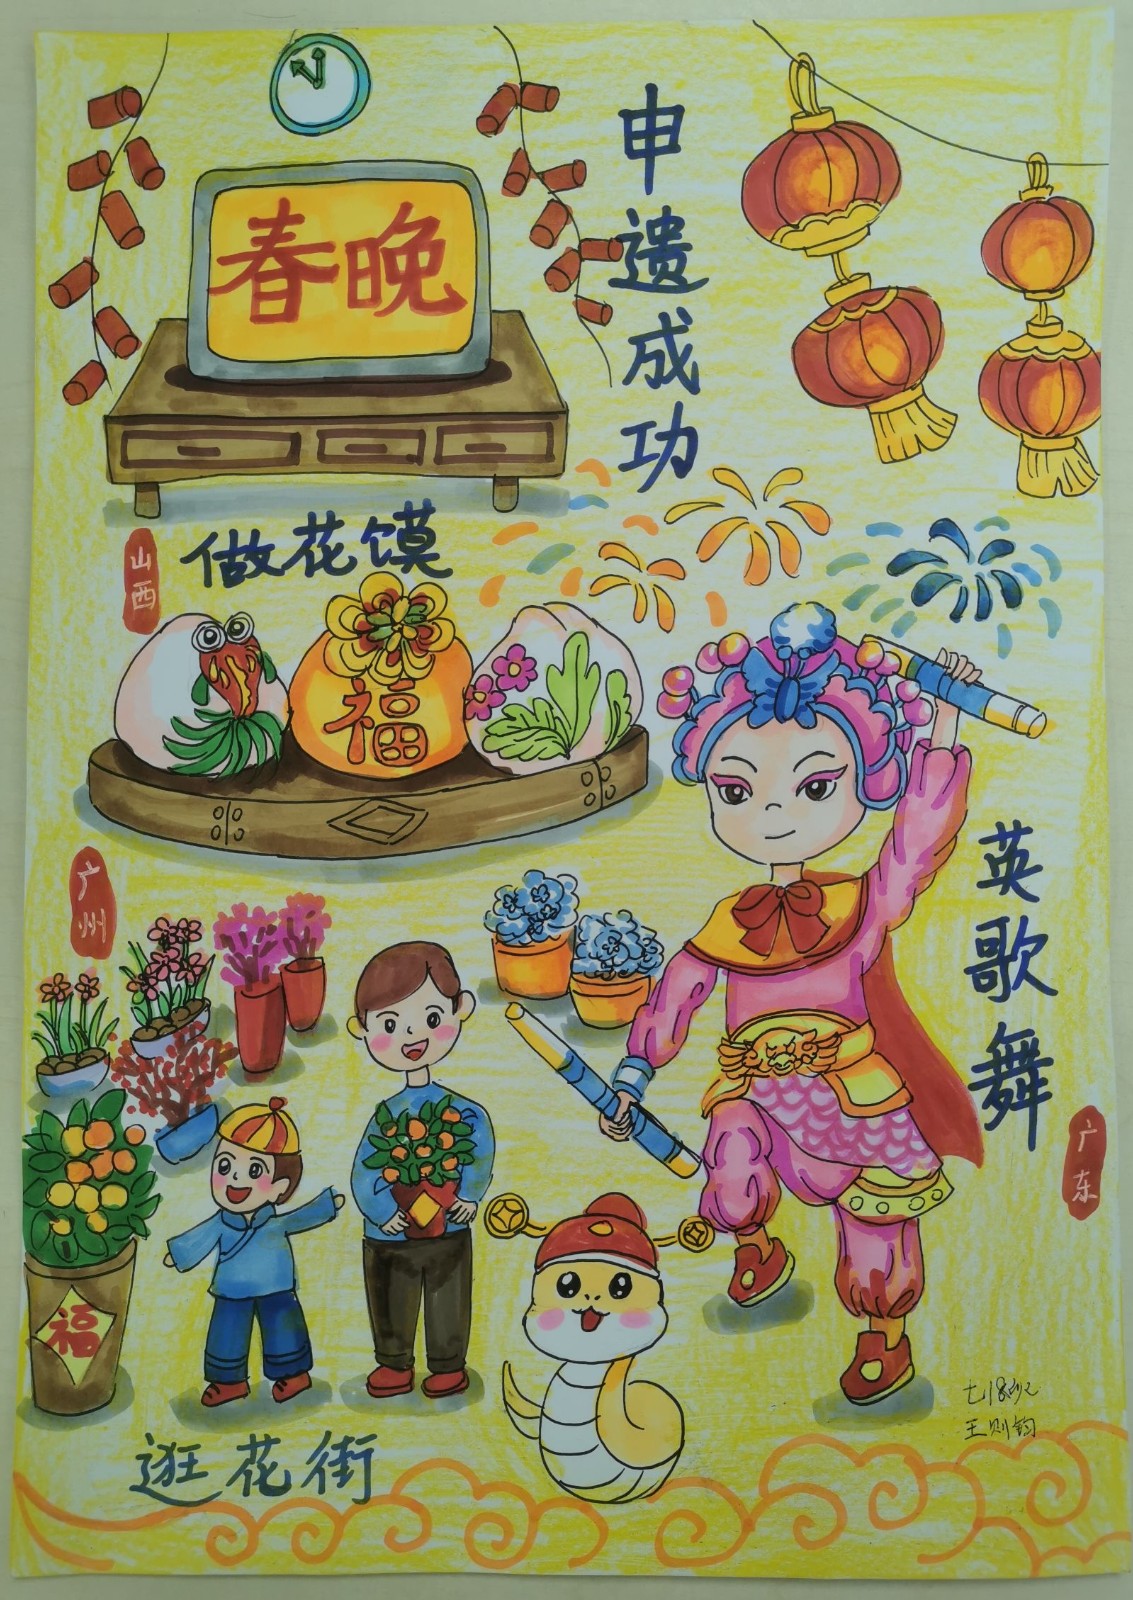 春晚
申遗成功
山西
做花馍
福
广州
英歌舞
广东
福
逛花街
七18班
王则钧